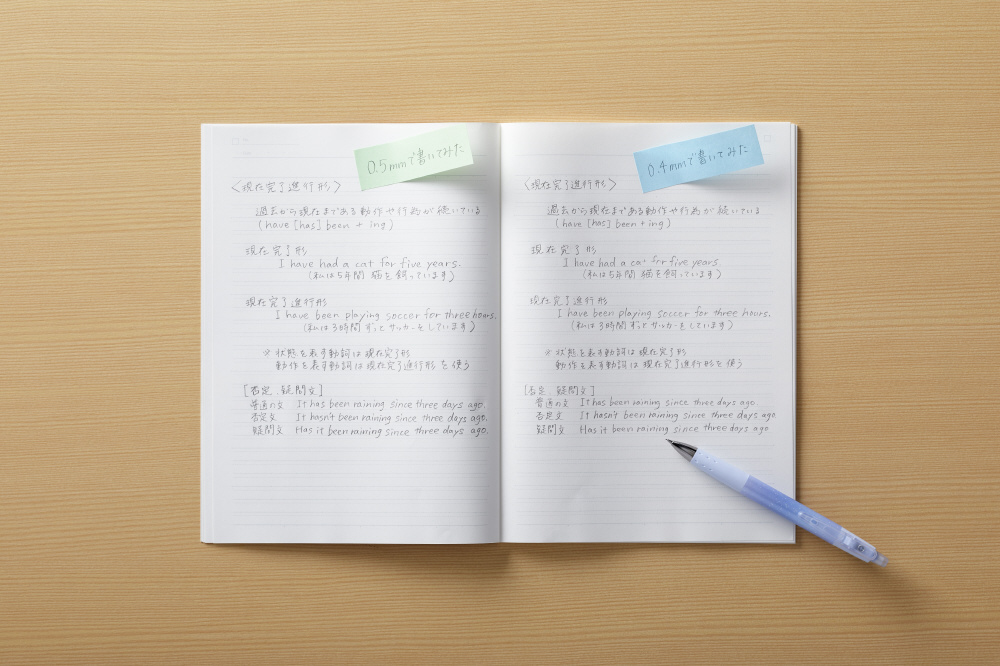 0.5mmで書いてみた
〈現在完了進行形〉
過去から現在まである動作や行為が続いている
(have [has] been + ing)
現在完了形
I have had a cat for five years.
(私は5年間 猫を飼っています)
現在完了進行形
I have been playing soccer for three hours.
(私は3時間ずっとサッカーをしています)
※ 状態を表す動詞は現在完了形
動作を表す動詞は現在完了進行形を使う
[否定.疑問文]
普通の文 It has been raining since three days ago.
否定文 It hasn't been raining since three days ago.
疑問文 Has it been raining since three days ago.
0.4mmで書いてみた
〈現在完了進行形〉
過去から現在まである動作や行為が続いている
(have [has] been + ing)
現在完了形
I have had a cat for five years.
(私は5年間 猫を飼っています)
現在完了進行形
I have been playing soccer for three hours.
(私は3時間ずっとサッカーをしています)
※ 状態を表す動詞は現在完了形
動作を表す動詞は現在完了進行形を使う
[否定.疑問文]
普通の文 It has been raining since three days ago.
否定文 It hasn't been raining since three days ago
疑問文 Has it been raining since three days ago